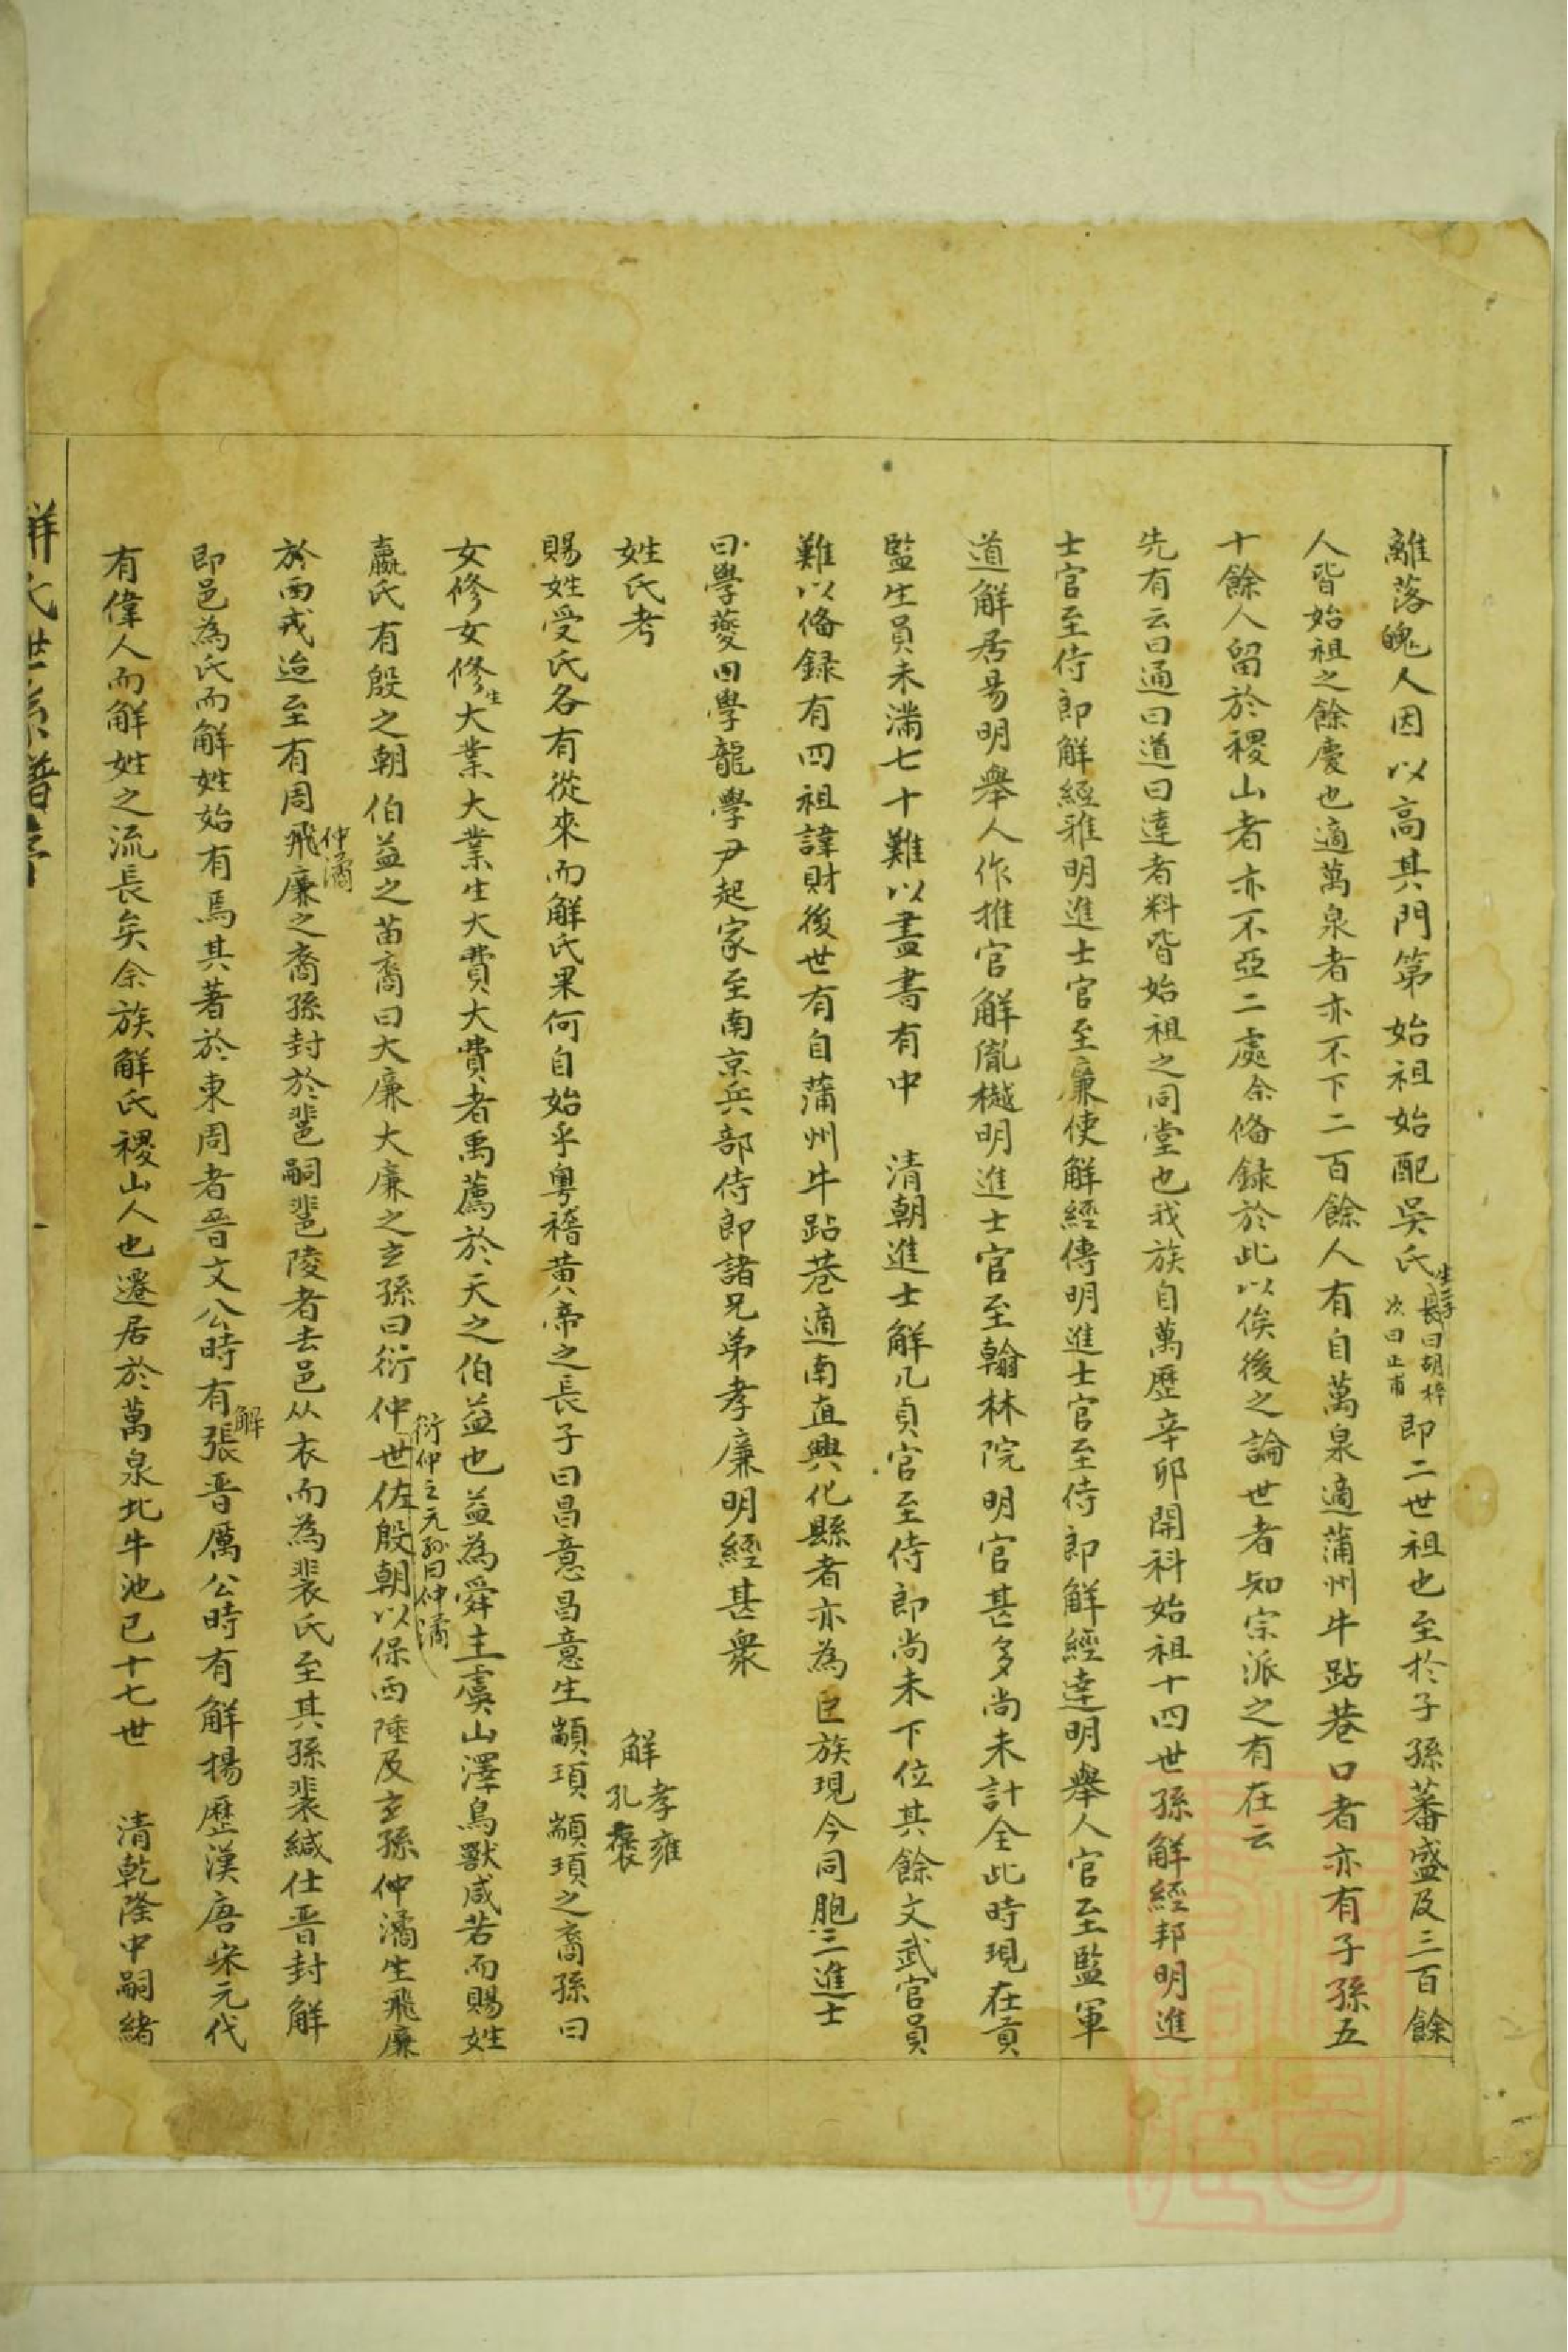 離落魄人因以高其門第始祖始配吳氏生二子長曰胡梓次曰止甫即二世祖也至於子孫蕃盛及三百餘
人皆始祖之餘慶也適萬泉者亦不下二百餘人有自萬泉適蒲州牛跕巷口者亦有子孫五
十餘人留於稷山者亦不亞二處余俻録於此以俟後之論世者知宗派之有在云
先有云曰通曰道曰達者料皆始祖之同堂也我族自萬歷辛卯開科始祖十四世孫解經邦明進
士官至侍郎解經雅明進士官至廉使解經傳明進士官至侍郎解經達明舉人官至監軍
道解居易明舉人作推官解胤樾明進士官至翰林院明官甚多尚未計全此時現在貢
監生員未滿七十難以盡書有中 清朝進士解几貞官至侍郎尚未下位其餘文武官員
難以俻録有四祖諱財後世有自蒲州牛跕巷適南直興化縣者亦為巨族現今同胞三進士
曰學夔曰學龍學尹起家至南京兵部侍郎諸兄弟孝廉明經甚衆
姓氏考 解孝雍孔褒
賜姓受氏各有從來而解氏果何自始乎粵稽黃帝之長子曰昌意昌意生顓頊顓頊之裔孫曰
女修女修生大業大業生大費大費者禹薦於天之伯益也益為舜主虞山澤鳥獸咸若而賜姓
嬴氏有殷之朝伯益之苗裔曰大廉大廉之玄孫曰衍仲衍仲之元孫曰仲潏世佐殷朝以保西陲及玄孫仲潏生飛廉
於西戎迨至有周仲潏飛廉之裔孫封於𨛬邑嗣𨛬邑陵者去邑从衣而為裴氏至其孫裴緘仕晋封解
即邑為氏而解姓始有焉其著於東周者晋文公時有解張晋厲公時有解揚歷漢唐宋元代
有偉人而解姓之流長矣余族解氏稷山人也遷居於萬泉北牛池已十七世 清乾隆中嗣緒
解氏世系譜序